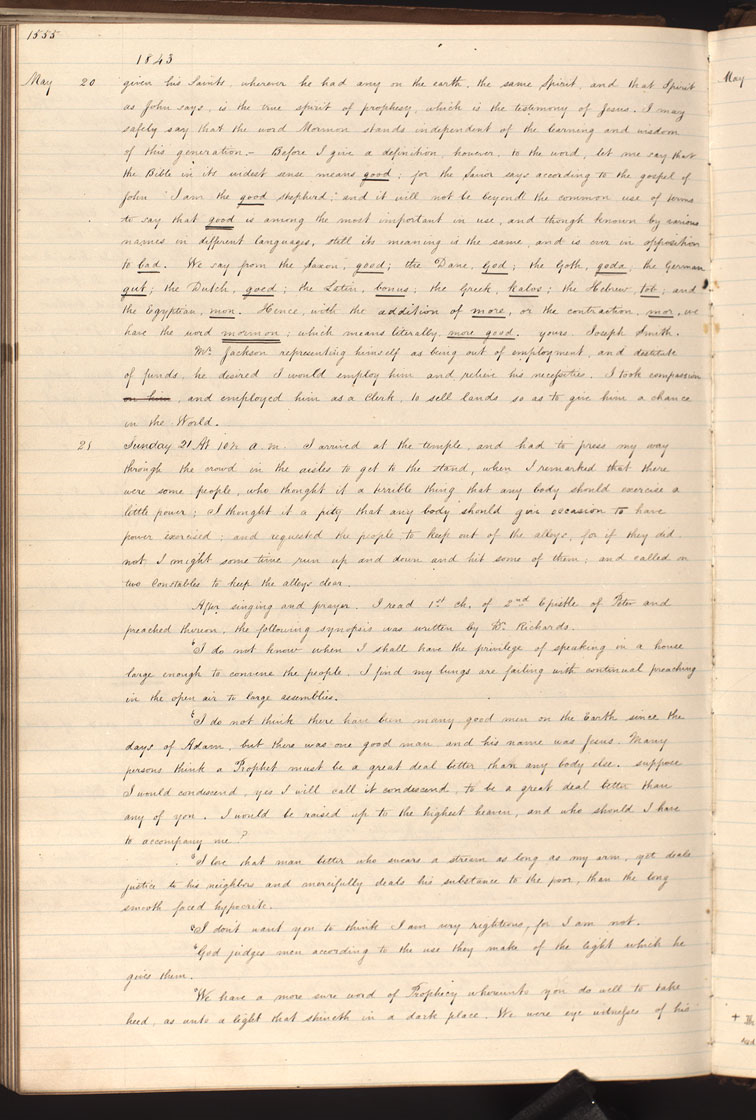 1555
1843
May 20 given his Saints, wherever he had any on the earth, the same Spirit, and that Spirit
as John says, is the true spirit of prophesy, which is the testimony of Jesus. I may
safely say that the word Mormon stands independent of the learning and wisdom
of this generation.— Before I give a definition, however, to the word, let me say that
the Bible in its widest sense means good; for the Savior says according to the gospel of
John "I am the good shepherd;" and it will not be beyond the common use of terms
to say that good is among the most important in use, and though known by various
names in different languages, still its meaning is the same, and is ever in opposition
to bad. We say from the Saxon, good; the Dane, God; the Goth, goda; the German
gut; the Dutch, goed; the Latin, bonus; the Greek, kalos; the Hebrew, tob; and
the Egyptian, mon. Hence, with the addition of more, or the contraction, mor, we
have the word mormon; which means literally, more good. yours. Joseph Smith.
Mr. Jackson representing himself as being out of employment, and destitute
of funds, he desired I would employ him and relieve his necessities. I took compassion
on him, and employed him as a Clerk, to sell lands so as to give him a chance
in the World.
21 Sunday 21 At 10½ a.m. I arrived at the temple, and had to press my way
through the crowd in the aisles to get to the stand, when I remarked that there
were some people, who thought it a terrible thing that any body should exercise a
little power; I thought it a pity that any body should give occasion to have
power exercised; and requested the people to keep out of the alleys, for if they did
not I might some time run up and down and hit some of them; and called on
two Constables to keep the alleys clear.
After singing and prayer. I read 1st ch. of 2nd Epistle of Peter and
preached thereon, the following synopsis was written by Dr. Richards.
"I do not know when I shall have the privilege of speaking in a house
large enough to convene the people. I find my lungs are failing with continual preaching
in the open air to large assemblies.
"I do not think there have been many good men on the Earth since the
days of Adam, but there was one good man, and his name was Jesus. Many
persons think a Prophet must be a great deal better than any body else. suppose
I would condescend, yes I will call it condescend, to be a great deal better than
any of you. I would be raised up to the highest heaven, and who should I have
to accompany me?
"I love that man better who swears a stream as long as my arm, yet deals
justice to his neighbors and mercifully deals his substance to the poor, than the long
smooth faced hypocrite.
"I don't want you to think I am very righteous, for I am not.
"God judges men according to the use they make of the light which he
gives them.
"We have a more sure word of Prophecy whereunto you do well to take
heed, as unto a light that shineth in a dark place. We were eye witnesses of his
May